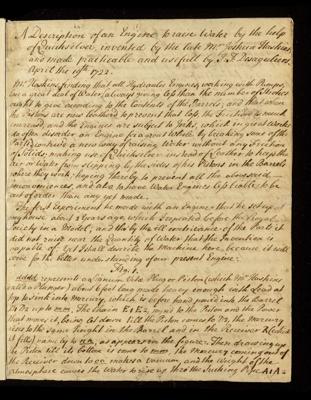 A Description of an Engine to raise Water by the help
of Quicksilver, invented by the late Mr. Joshua Haskins,
and made practicable and usefull by J. T. Desaguliers.
April the 19th 1722.
Mr. Haskins finding that all Hydraulic Engines working with Pumps,
lose a great deal of Water, always giving less than the number of Strokes
ought to give according to the Contents of the Barrels; and that when
the Pistons are new leathered to prevent that loss, the Friction is much
increased, and the Engines are subject to Jolts, which in great Works
so often disorder an Engine for a great while by breaking some of the
Parts; contrived a new way of raising Water without any Friction
of Solids; making use of Quicksilver instead of Leather to keep the
Air or Water from slipping by the sides of the Pistons in the Barrels
where they work; hoping thereby to prevent all the abovesaid
inconveniences, and also to have Water Engines less liable to be
out of order than any yet made.
The first Experiment he made with an Engine thus he set up at
my house about 2 Years ago, which I repeated before the Royal
Society in a Model; and tho' by the ill contrivance of the Parts it
did not raise near the Quantity of Water that the Invention is
capable of, yet I shall describe the Machine here, because it will
serve for the better understanding of our present Engine.
Fig. 1.
represents a Lignum Vitæ Plug or Piston (which Mr. Haskins
called a Plunger) about 6 feet long made heavy enough with Lead at
top to sink into Mercury, which is before hand poured into the Barrel
up to mm. The Chain joyn'd to the Piston and the Power
that moves it, being let down till the Piston comes to the Mercury
rises to the same height in the Barrel and in the Receiver (which
it fills) namely to nn, as appears in the figure. Then drawing up
the Piston till its bottom is come to mm, the Mercury coming out of
the Receiver down to oo makes a vacuum, and the Weight of the
Atmosphere causes the Water to rise up thro' the Sucking Pipe